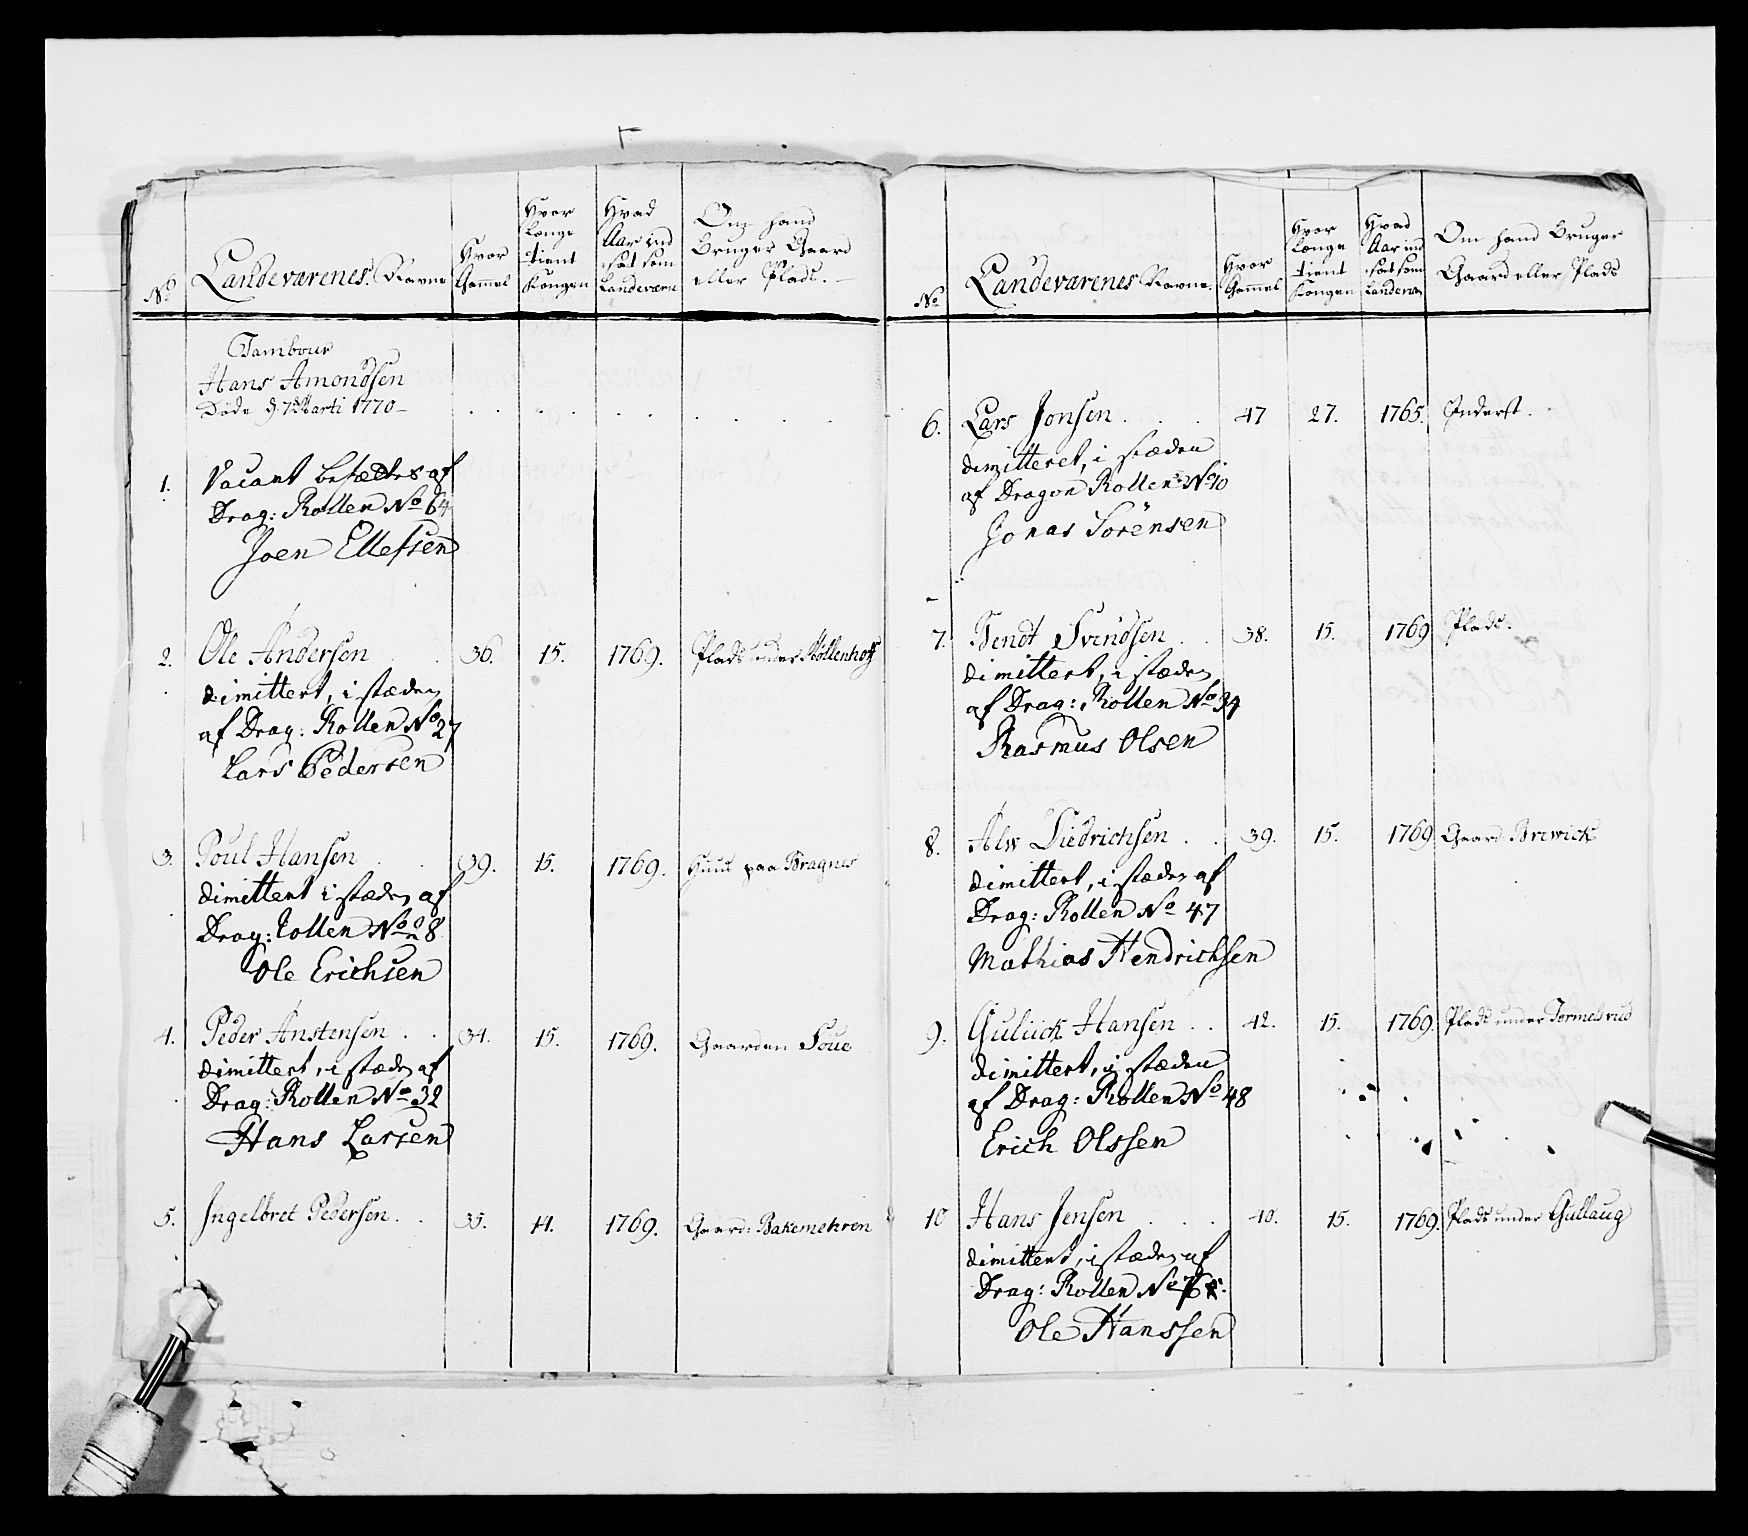 No
Landeværenes Navne
Hvor Gammel
Hvor længe tient Kongen
Hvad Aar ind sat som Landeværn
Om hand Bruger Gaard eller Plads.
Tambour
Hans Amondsen
Døde d: 7de Marti 1770
1. Vacant besættes af
Drag: Rollen No 64
Joen Ellefsen
2. Ole Andersen . . 36. 15. 1769. Plads under
dimittert, i stæden
af Drag: Rollen No 27
Lars Pedersen
3. Poul Hansen . . 39. 15. 1769. Huus paa Bragnes
dimittert i stæden af
Drag: Rollen No 28
Ole Erichsen
4. Peder Anstensen . . 34. 15. 1769. Gaarden Foue
dimittert, i stæden af
Drag: Rollen No 32
Hans Larsen
5. Ingelbret Pedersen . . 35. 14. 1769. Gaard: Bakemehren
No
Landeværenes Navne.
Hvor Gammel
Hvor længe tient Kongen
Hvad Aar ind sat som Landeværn
Om hand Bruger
Gaard eller Plads
6. Lars Jonsen . . . 47 27. 1765. Inderst.
dimitteret, i stæden
af Dragon Rollen No 10
Jonas Sörensen
7. Bendt Svendsen . . 38. 15. 1769 Plads.
dimittert, i stæden
af Drag: Rollen No 34
Rasmus Olsen
8. Alw Diedrichsen . . 39. 15. 1769 Gaard Brewick
dimittert, i stæden af
Drag: Rollen No 47
Mathias Hendrichsen
9. Guliick Hansen . . 42. 15. 1769. Plads under
dimittert, i stæden
af Drag: Rollen No 48
Erich Olssen
10 Hans Jensen . . . 40. 15. 1769. Plads under Gullaug
dimittert, i stæden af
Drag: Rollen No
Ole Hanssen